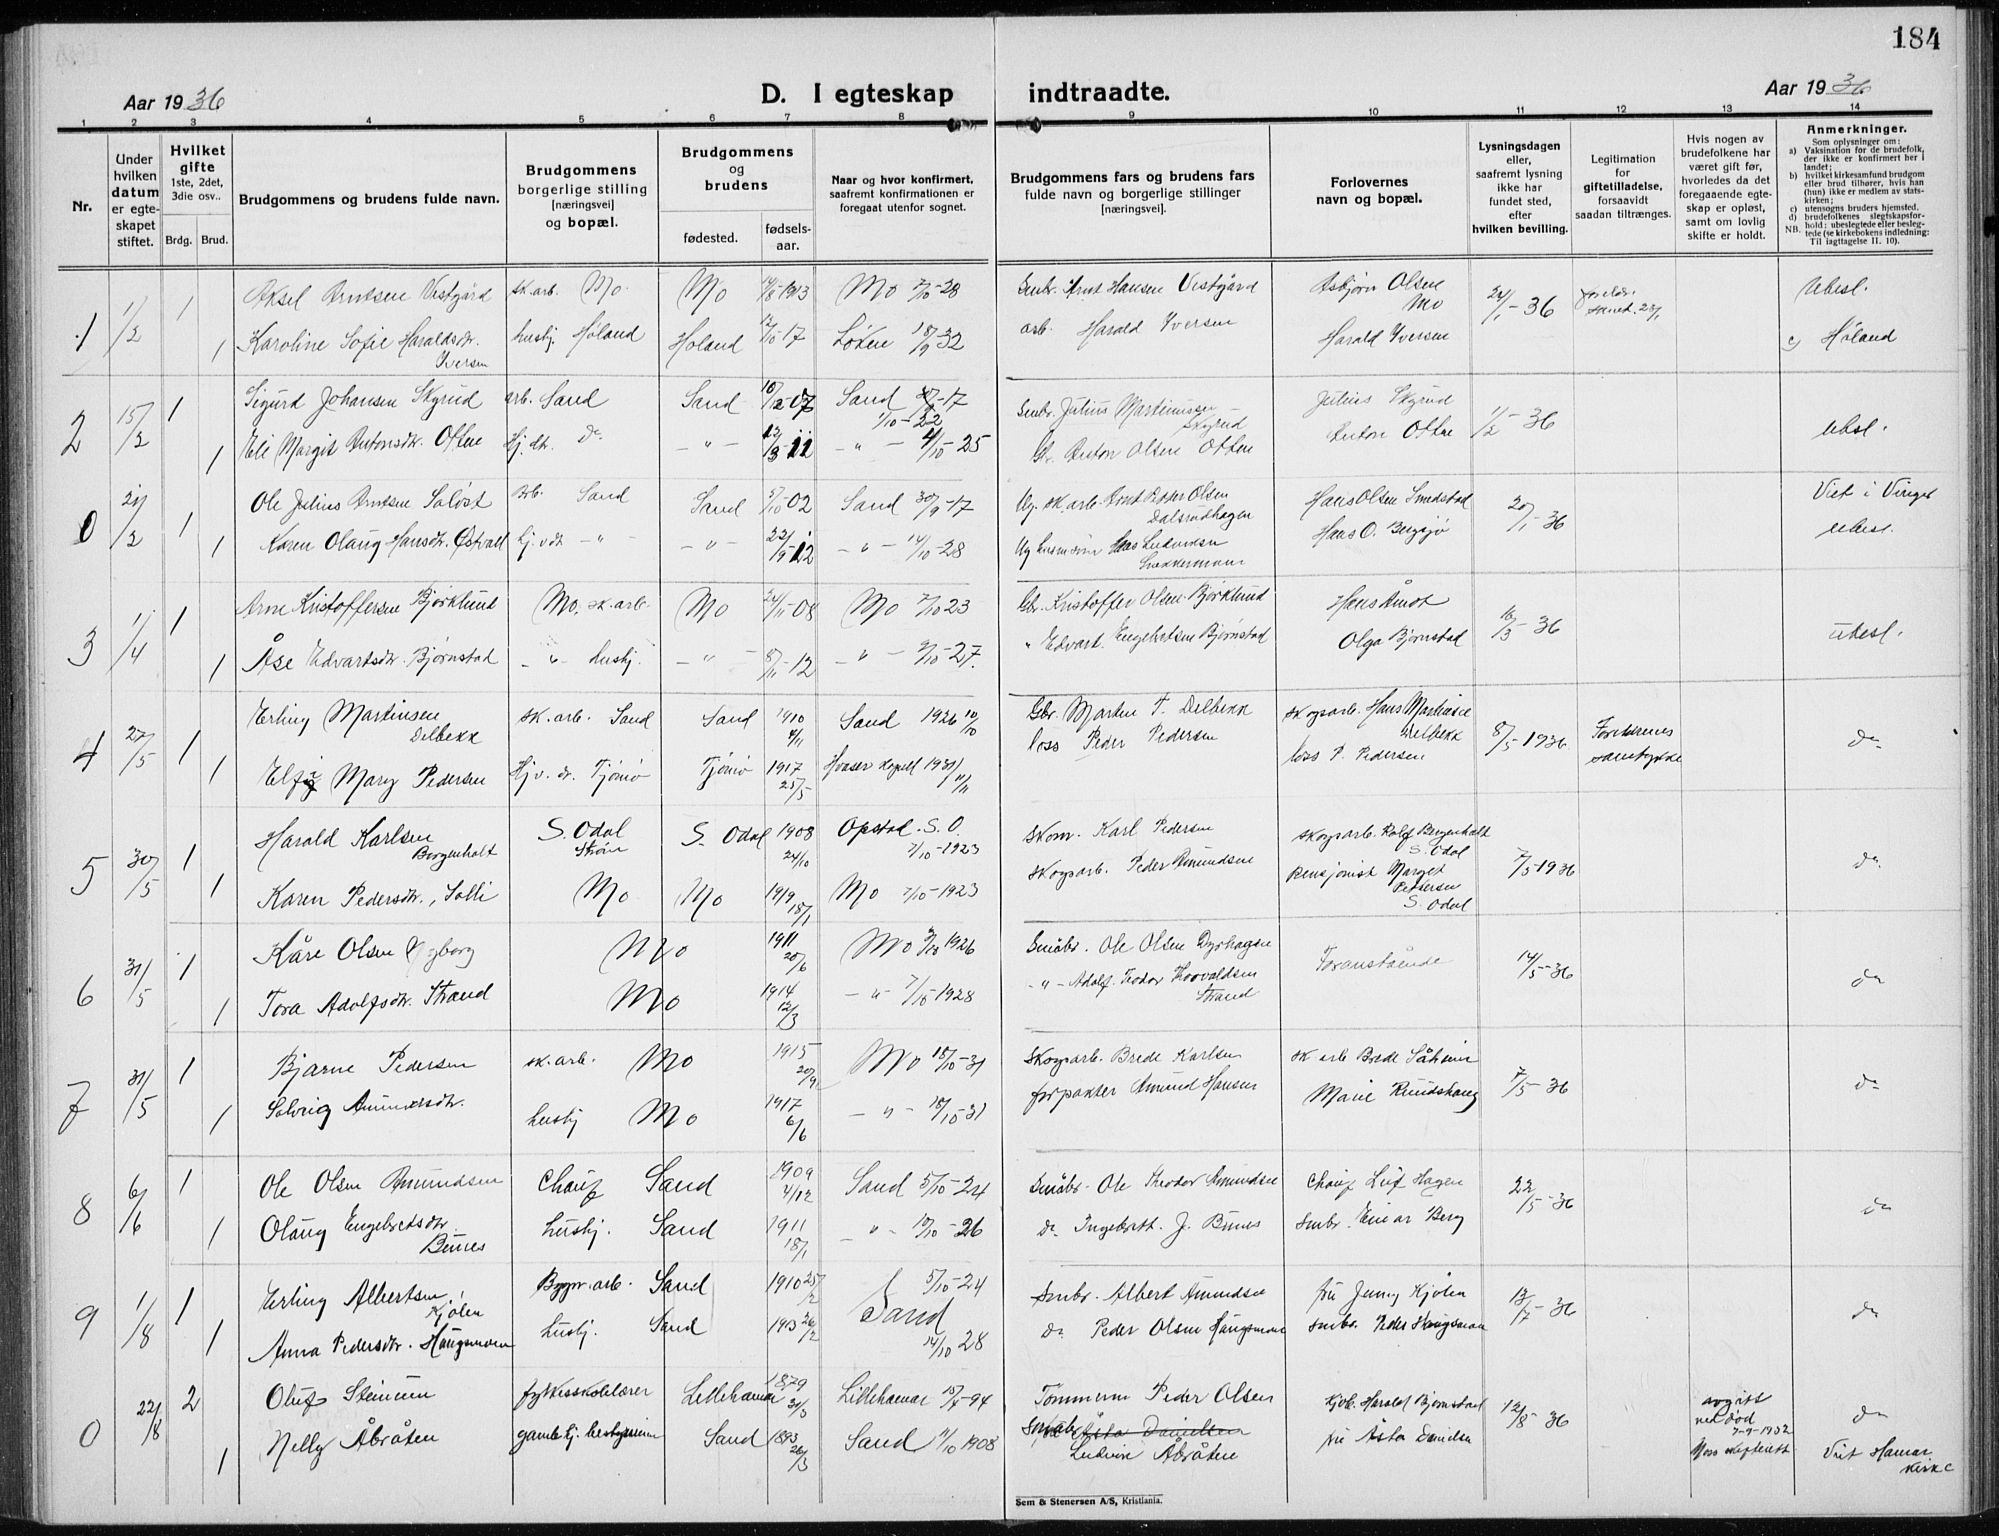 184
Aar 1936
D. I egteskap indtraadte.
Aar 1936
1 2 3 4 5 6 7 8 9 10 11 12 13 14
Nr.
Under hvilken datum er egteskapet stiftet.
Hvilket gifte 1ste, 2det, 3die osv..
Brdg. Brud.
Brudgommens og brudens fulde navn.
Brudgommens borgerlige stilling [næringsvei] og bopæl.
Brudgommens og brudens
fødested.
fødsels-aar.
Naar og hvor konfirmert, saafremt konfirmationen er foregaat utenfor sognet.
Brudgommens fars og brudens fars fulde navn og borgerlige stillinger [næringsvei].
Forlovernes navn og bopæl.
Lysningsdagen eller, saafremt lysning ikke har fundet sted, efter hvilken bevilling.
Legitimation for giftetilladelse, forsaavidt saadan tiltrænges.
Hvis nogen av brudefolkene har været gift før, hvorledes da det foregaaende egteskap er opløst, samt om lovlig skifte er holdt.
Anmerkninger.
Som oplysninger om:
a) Vaksination for de brudefolk, der ikke er konfirmert her i landet;
b) hvilket kirkesamfund brudgom eller brud tilhører, hvis han (hun) ikke er medlem av statskirken;
c) utensogns bruders hjemsted.
d) brudefolkenes slegtskapsforhold: ubeslegtede eller beslegtede (se kirkebokens indledning:
NB. Til iagttagelse II. 10).
1 1/2 1 Aksel Arntsen Vestgård sk.arb. Mo. Mo 1913 Mo 7/10-28 Smbr. Arnt Hansen Vestgård Asbjørn Olsen Mo 24/1-36 Ubesl.
1 Karoline Sofie Haraldsdr. Iversen hushj. Høland Høland 12/10-17 Løken 18/9 32 arb. Harald Iversen Harald Iversen c) Høland
2 15/2 1 Sigurd Johansen Skyrud arb. Sand Sand 10/12-07 Sand -17 1/10-22 Smbr. Julius Martinussen Skyrud Julius Skyrud 1/2-36 ubsl.
1 Eli Margit Antonsdr. Otten Hj. dtr. do - " - 12/3 11 - " - 4/10-25 Gbr. Anton Olsen Otten Anton Otten
0 21/2 1 Ole Julius Arntsen Ar. Sand Sand 5/10-02 Sand 30/9-17 Ug. sk.arb. Arnt Olsen Dalsrudhagen Hans Olsen Smedstad 20/1-36 Viet i Vinger
1 Karen Olaug Hansdtr. Østvall hj. v dt - " - - " - 22/9-12 - " - 14/10-28 Hans Ludvigsen Snekkermoen Hans O. Bergsjø ubesl.
3 1/4 1 Arne Kristoffersen Bjørklund Mo, sk.arb. Mo 24/11-08 Mo 7/10 23 Gbr. Kristoffer Olsen Bjørklund Hans Amot 16/3-36 ubesl.
1 Åse Edvartsdtr. Bjørnstad - " - hushj. - " - 8/11-12 - " - 9/10-27. " Edvart Engebretsen Bjørnstad Olga Bjørnstad
4 27/5 1 Erling Martinsen Delbekk sk.arb. Sand Sand 1910 4/11 Sand 1926 10/10 Gbr. Martin T. Delbekk skogsarb. Hans Martinsen Delbekk 8/5-1936 Foreldrenes samtykke do
1 Mary Pedersen Hj.v. dr. Tjømø Tjømø 1917 25/5 Hvaser kapell 1931 1/11 loss Peder Pedersen loss P. Pedersen
5 30/5 1 Harald Karlsen Borgenholt S. Odal Strøm S. Odal 1908 24/10 Opstad. S.O. 7/10-1923 Skom. Karl Pedersen skogsarb. Rolf Bergenholt S. Odal 7/5 1936 do
1 Karen Pedersdtr., Solli Mo Mo 1919 18/1 Mo 7/10-1923 skogsarb. Peder Amundsen Pensjonist Marget Pettersen S. Odal
6 31/5 1 Kåre Olsen Mo 1911 20/6 Mo 3/10 1926 Småbr. Ole Olsen Dyrhagen Foranstående 14/5-36 do
1 Tora Adolfsdtr. Strand Mo 1914 12/3 - " - 7/10 1928 - " - Adolf Teodor Thorvaldsen Strand
7 31/5 1 Bjarne Pedersen sk.arb. Mo 1915 20/9 Mo 18/10-31 Skogsarb. Brede Karlsen sk arb Brede 7/5-36 do
1 Solveig Amundsdtr. hushj Mo 1917 6/6 - " - 18/10-31 forpakter Amund Hansen Marie Rundshaug
8 6/6 1 Ole Olsen Amundsen Chauf Sand 1909 4/12 Sand 5/10-24 Småbr. Ole Theodor Amundsen Chauf Leif Hagen 22/5-36 do
1 Olaug Engebretsdtr. Bunes hushj. Sand 1911 18/1 - " - 10/10-26 do Ingebrett. J. Bunes smbr. Einar Berg
9 1/8 1 Erling Albertsen Kjølen Bygn.arb. Sand 1910 25/2 5/10-24 Sand Smbr. Albert Amundsen fru Jenny Kjølen 13/7-36 do
1 Anna Pedersdtr. Haugsmoen hushj. Sand 1913 26/2 14/10 28 do Peder Olsen Haugsmoen smbr. Peder Haugsmoen
0 22/8 2 Oluf Steinum fylkesskolelærer Lillehamar 1879 31/3 Lillehamar 15/-94 Tømmerm Peder Olsen Kjbr. Harald Bjørnstad 12/8-36 avgått ved død 7-9-1932 Moss skifterett do
1 Nelly Åbråten gamlehj. bestyrerinne Sand 1893 26/3 Sand 11/10 1908 Småbr Åsta Danielsen Ludvin Åbråten fru Åsta Danielsen Viet Hamar kirke
Sem & Stenersen A/S, Kristiania.